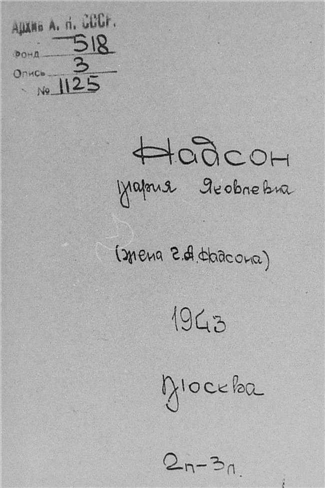 Архив А. Н. СССР.
Фонд 518
Опись 3
№ 1125
Надсон
Мария Яковлевна
(жена Г.А. Надсона)
1943
Москва
2п-3л.